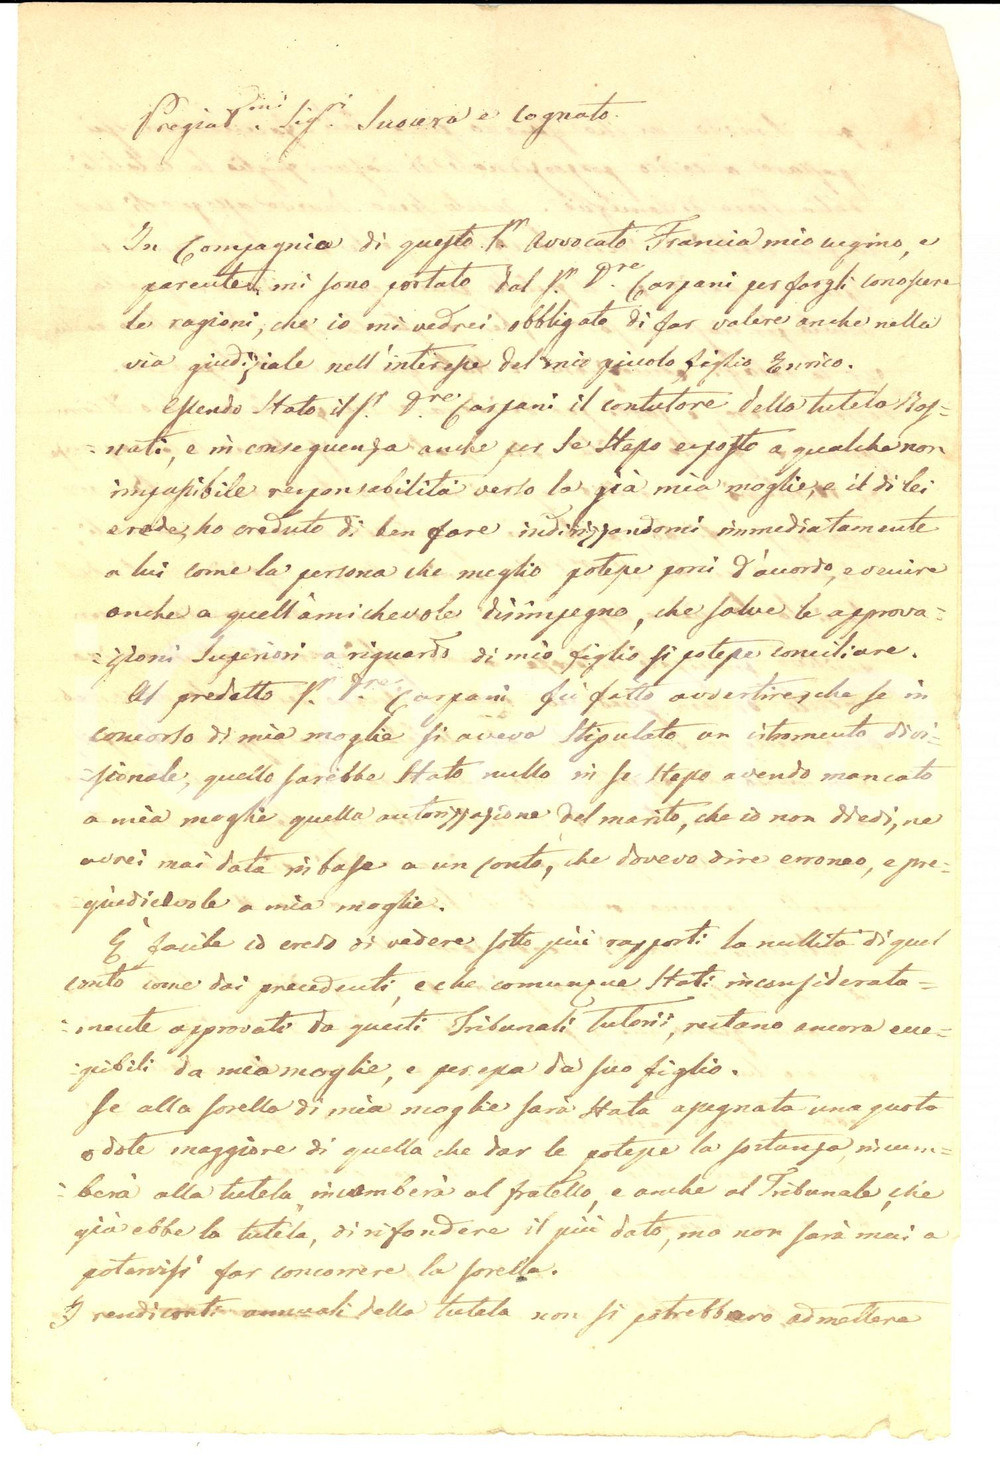 Pregiat.mi Sig.ri Suocera e Cognato.
In Compagnia di questo S.r Avvocato Francia mio cugino, e
parente, mi sono portato dal S.r D.re Carpani per fargli conoscere
le ragioni, che io mi vedrei obbligato di far valere anche nella
via giudiziale nell'interesse del mio piccolo figlio Enrico.
Essendo stato il S.r D.re Carpani il contutore della tutela Ros=
=nati, e in conseguenza anche per se stesso esposto a qualche non
impossibile responsabilità verso la già mia moglie, e il di lei
erede, ho creduto di ben fare indirizzandomi immediatamente
a lui come la persona che meglio potesse porsi d'accordo, e venire
anche a quell'amichevole disimpegno, che salve le approva=
=zioni Superiori a riguardo di mio figlio si potesse conciliare.
Al predetto S.r D.re Carpani fù fatto avvertire, che se in
concorso di mia moglie si aveva stipulato un istromento divi=
=sionale, quello sarebbe stato nullo in se stesso avendo mancato
a mia moglie quella autorizzazione del marito, che io non diedi, ne
avrei mai data in base a un conto, che dovevo dire erroneo, e pre=
=giudicievole a mia moglie.
È facile io credo di vedere sotto più rapporti la nullità di quel
conto come dai precedenti, e che comunque stati inconsiderata=
=mente approvati da questi Tribunali tutorii, restano ancora ecce=
=pibili da mia moglie, e per essa da suo figlio.
Se alla sorella di mia moglie sarà stata assegnata una quota
o dote maggiore di quella che dar le potesse la sostanza, incum=
=berà alla tutela, incomberà al fratello, e anche al Tribunale, che
già ebbe la tutela, di rifondere il più dato, ma non sarà mai a
potervisi far concorrere la sorella.
I rendiconti annuali della tutela non si potrebbero admettere